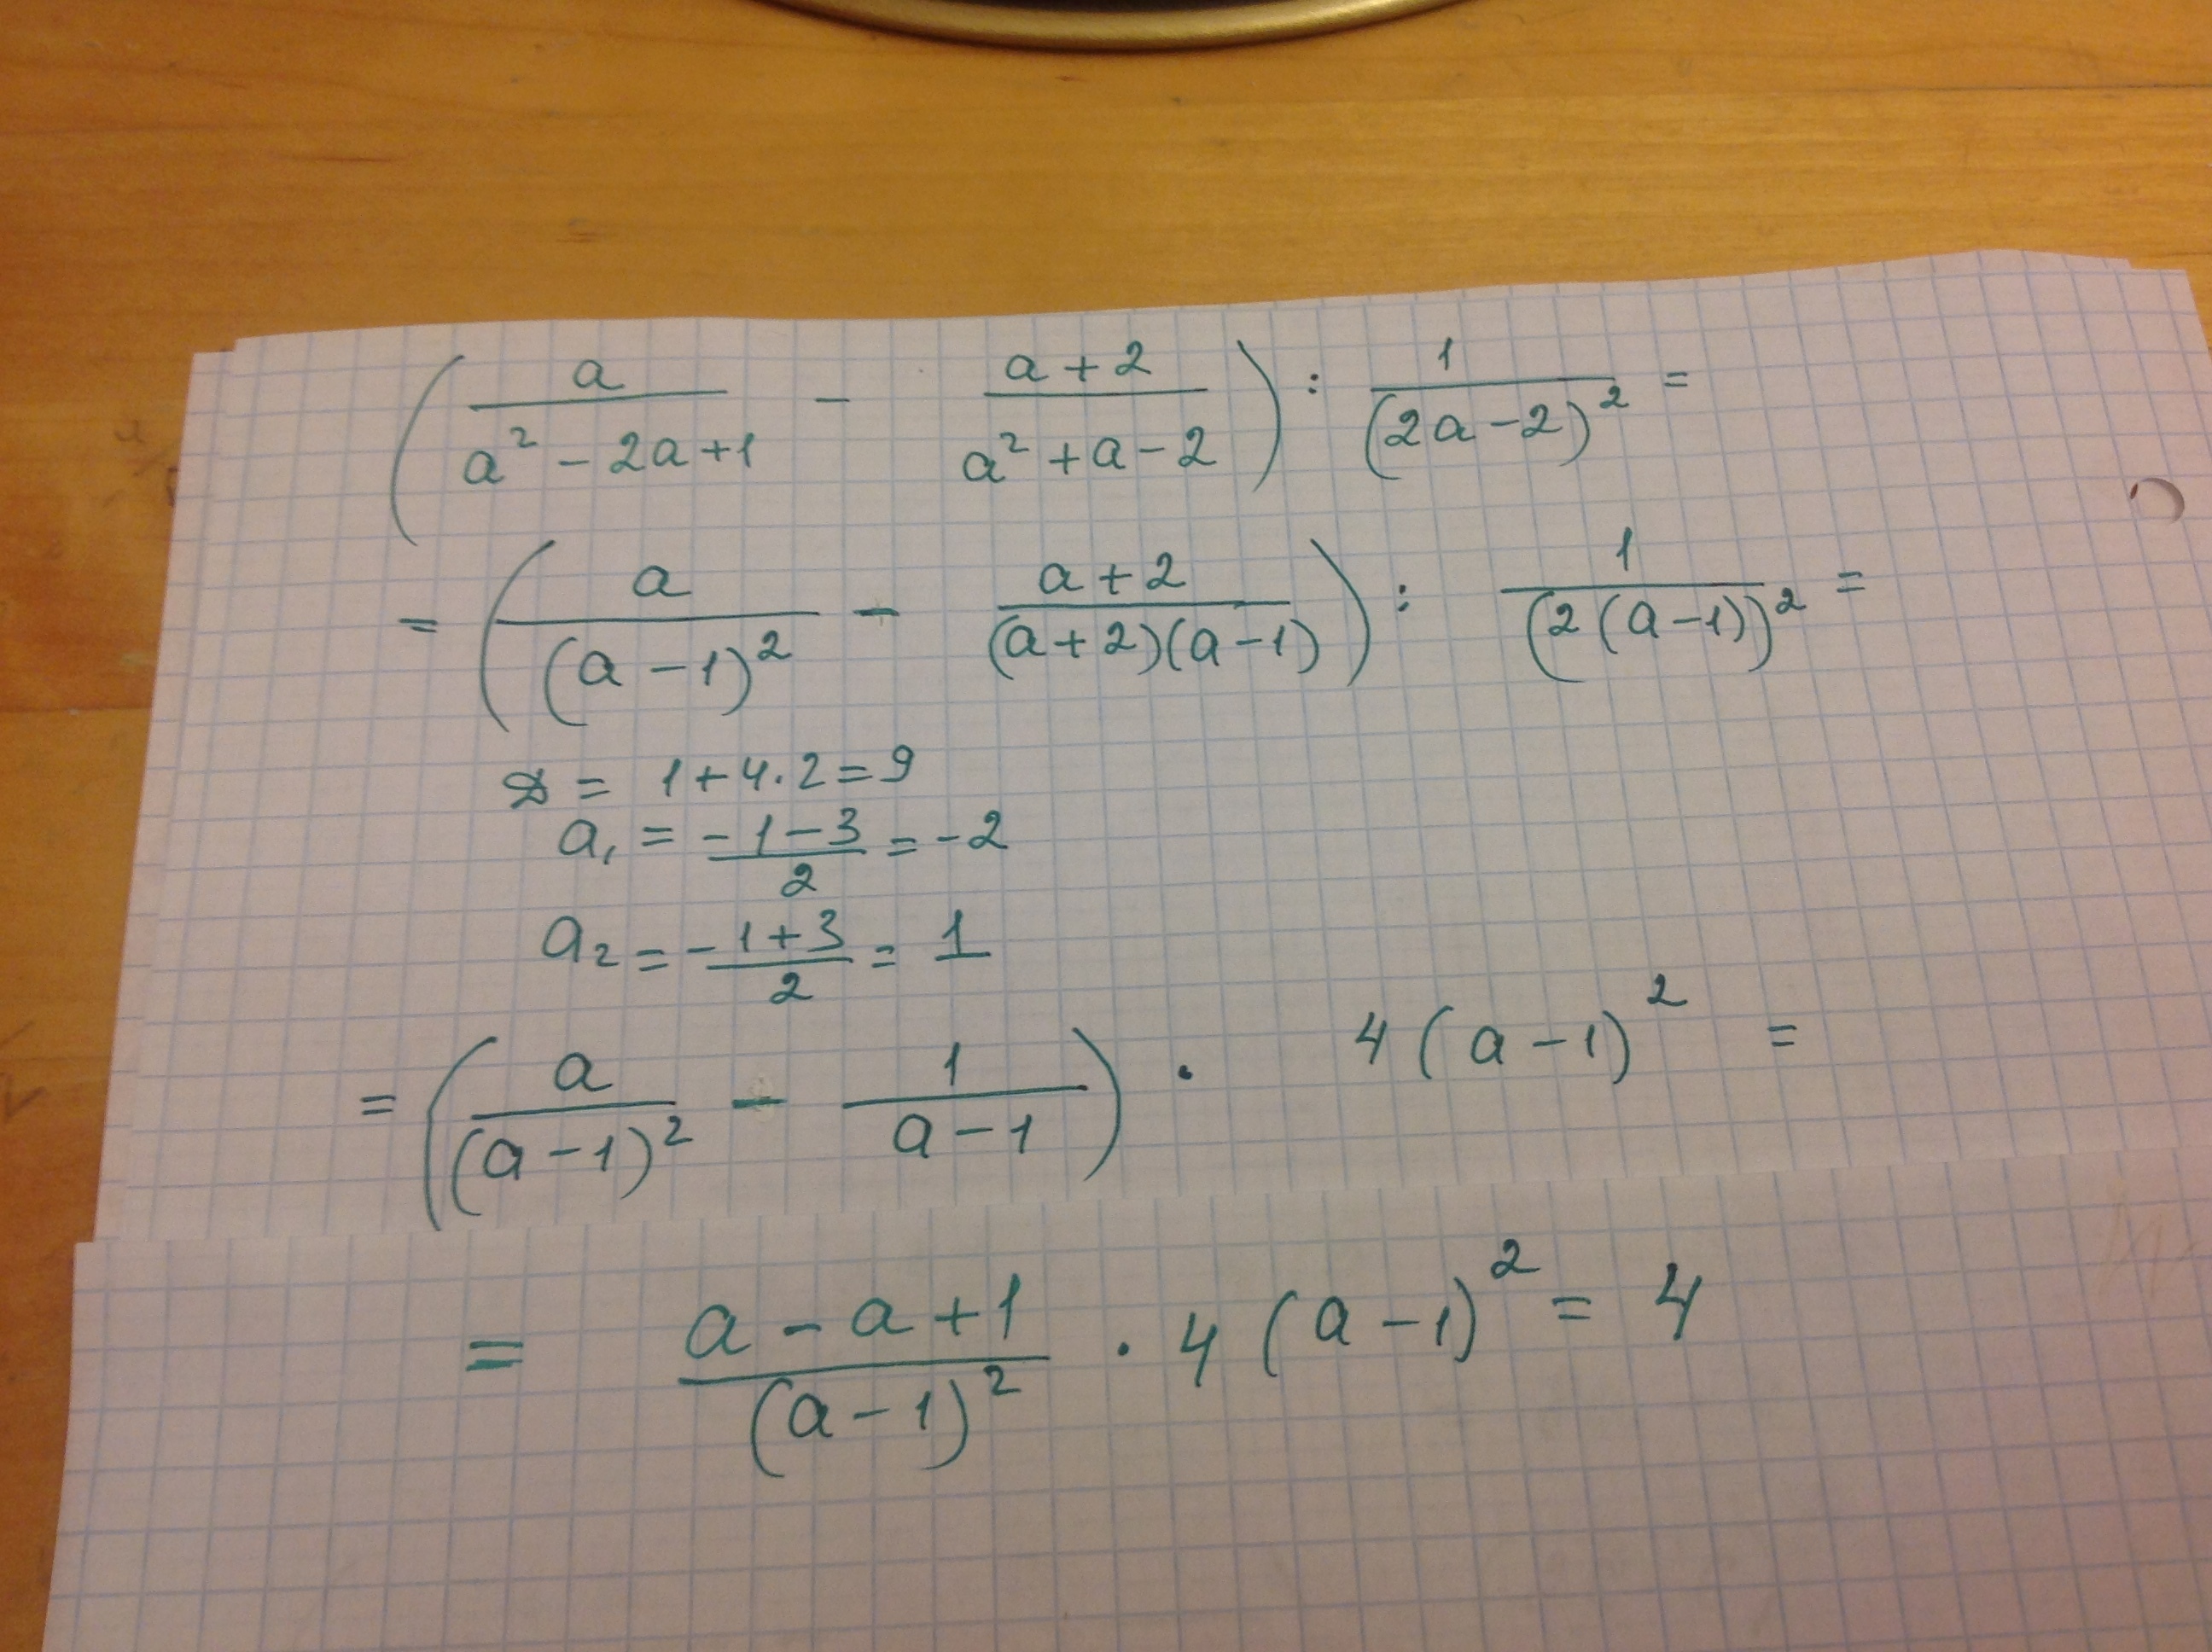 ( a/(a² - 2a + 1) - (a + 2)/(a² + a - 2) ) : 1/(2a - 2)² =
= ( a/(a - 1)² - (a + 2)/((a + 2)(a - 1)) ) : 1/(2(a - 1))² =
D = 1 + 4 · 2 = 9
a₁ = (-1 - 3)/2 = -2
a₂ = (-1 + 3)/2 = 1
= ( a/(a - 1)² - 1/(a - 1) ) · 4(a - 1)² =
= (a - a + 1)/(a - 1)² · 4(a - 1)² = 4